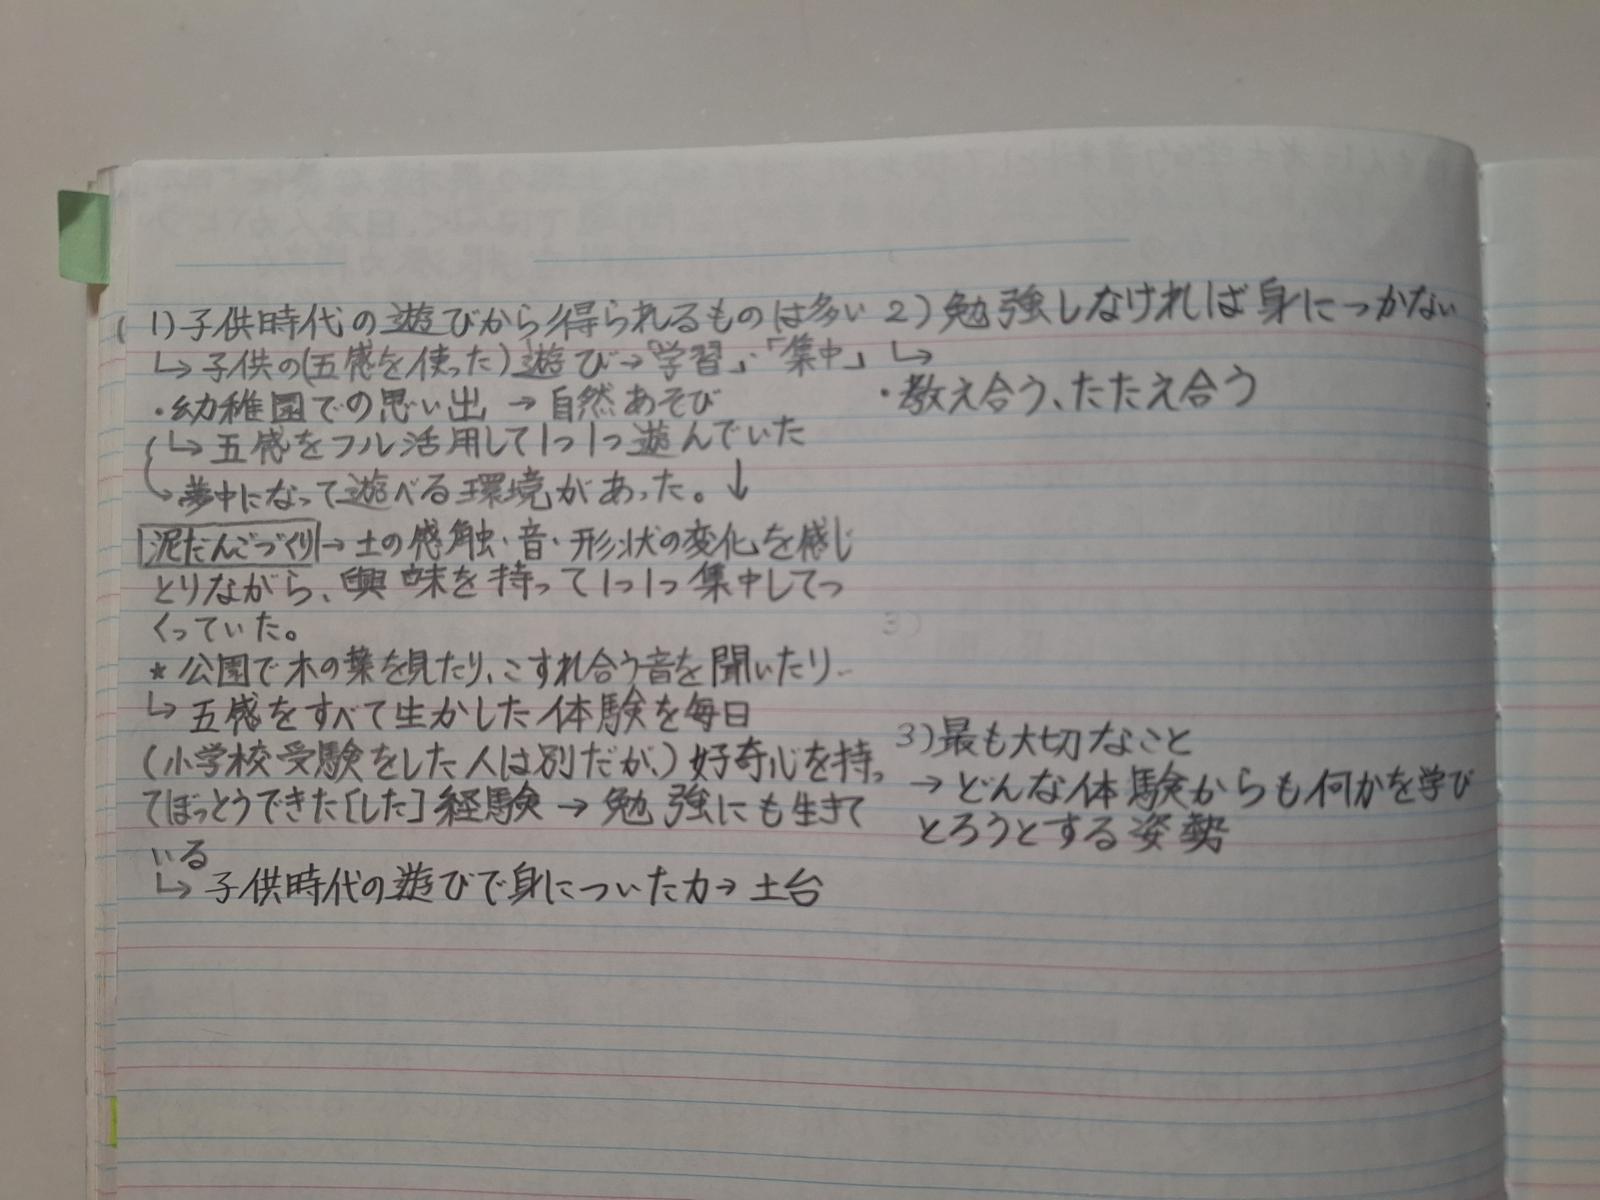 1)子供時代の遊びから得られるものは多い
↳子供の(五感を使った)遊び→「学習」・「集中」
・幼稚園での思い出 → 自然あそび
↳五感をフル活用して1つ1つ遊んでいた
↳夢中になって遊べる環境があった。↓
泥だんごづくり→土の感触・音・形状の変化を感じ
とりながら、興味を持って1つ1つ集中してつ
くっていた。
★公園で木の葉を見たり、こすれ合う音を聞いたり
↳五感をすべて生かした体験を毎日
(小学校受験をした人は別だが、)好奇心を持っ
てぼっとうできた[した]経験→勉強にも生きて
いる
↳子供時代の遊びで身についた力→土台
2)勉強しなければ身につかない
↳
・教え合う、たたえ合う
3)
3)最も大切なこと
→どんな体験からも何かを学び
とろうとする姿勢